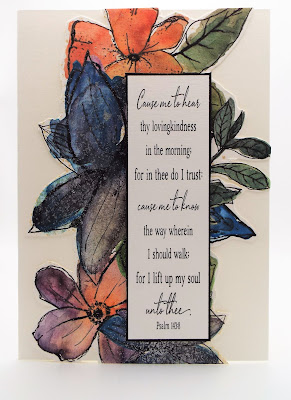 Cause me to hear
thy lovingkindness
in the morning;
for in thee do I trust:
cause me to know
the way wherein
I should walk;
for I lift up my soul
unto thee.
Psalm 143:8